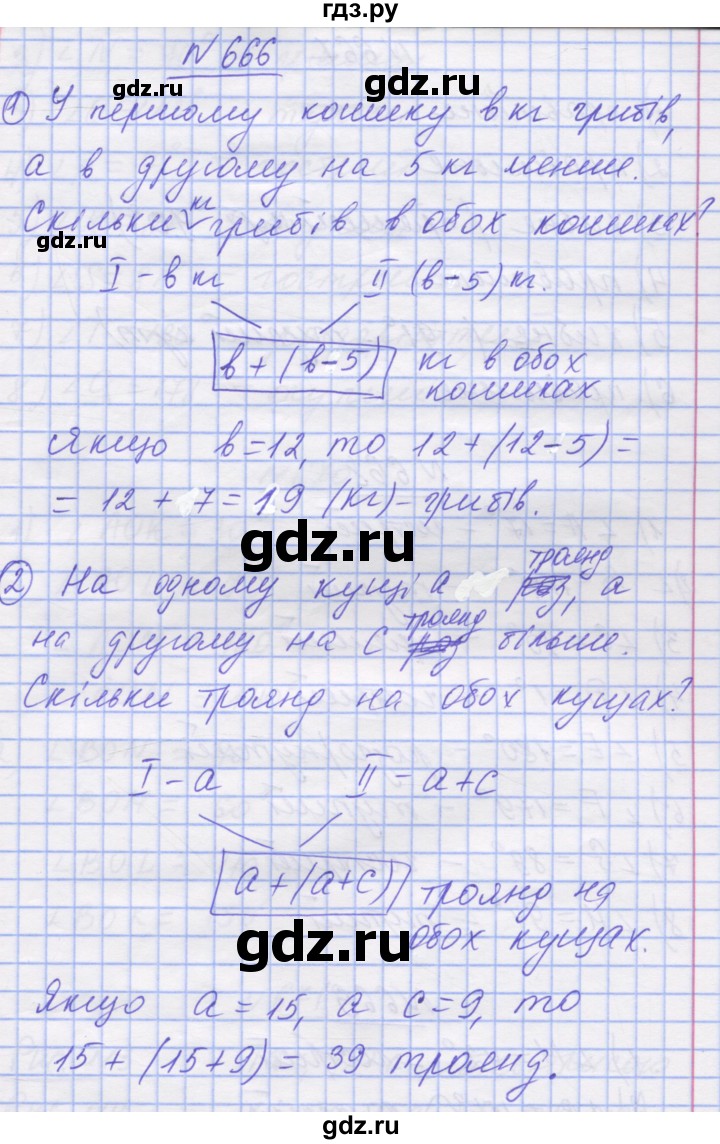 гдз.ру
N 666
gdz.ru gdz.ru
1 У першому кошику в кг грибів,
а в другому на 5 кг менше.
Скільки кг грибів в обох кошиках?
gdz.ru
I – в кг II (в–5) кг.
в + (в–5) кг в обох
кошиках
Якщо в=12, то 12+(12–5)=
= 12 + 7 = 19 (кг) – грибів.
gdz.ru
2 На одному кущі а троянд, а
на другому на с троянд більше.
Скільки троянд на обох кущах?
I – а II – а+с
а+(а+с) троянд на
обох кущах.
gdz.ru
Якщо а = 15, а с=9, то
15 + (15+9) = 39 троянд.
gdz.ru